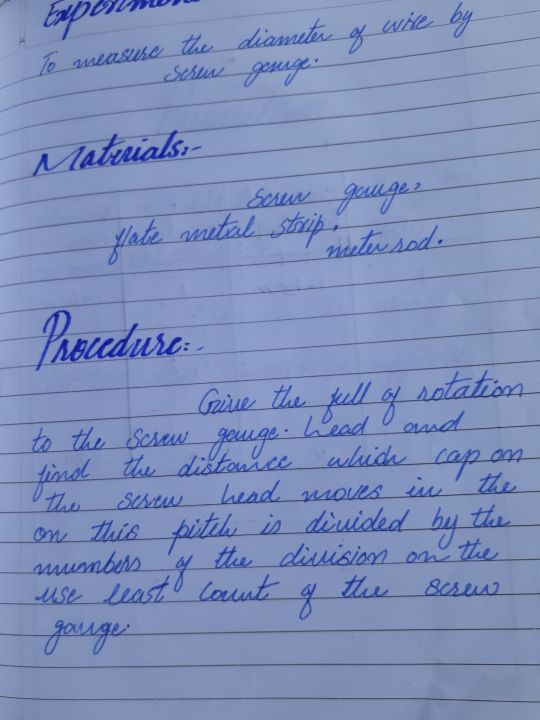 Experiment
To measure the diameter of wire by
screw gauge.
Materials:-
Screw gauge,
flate metal strip,
meter rod.
Procedure:-
Give the full of rotation
to the screw gauge. head and
find the distance which cap on
the screw head moves in the
on this pitch is divided by the
numbers of the division on the
use least count of the screw
gauge.